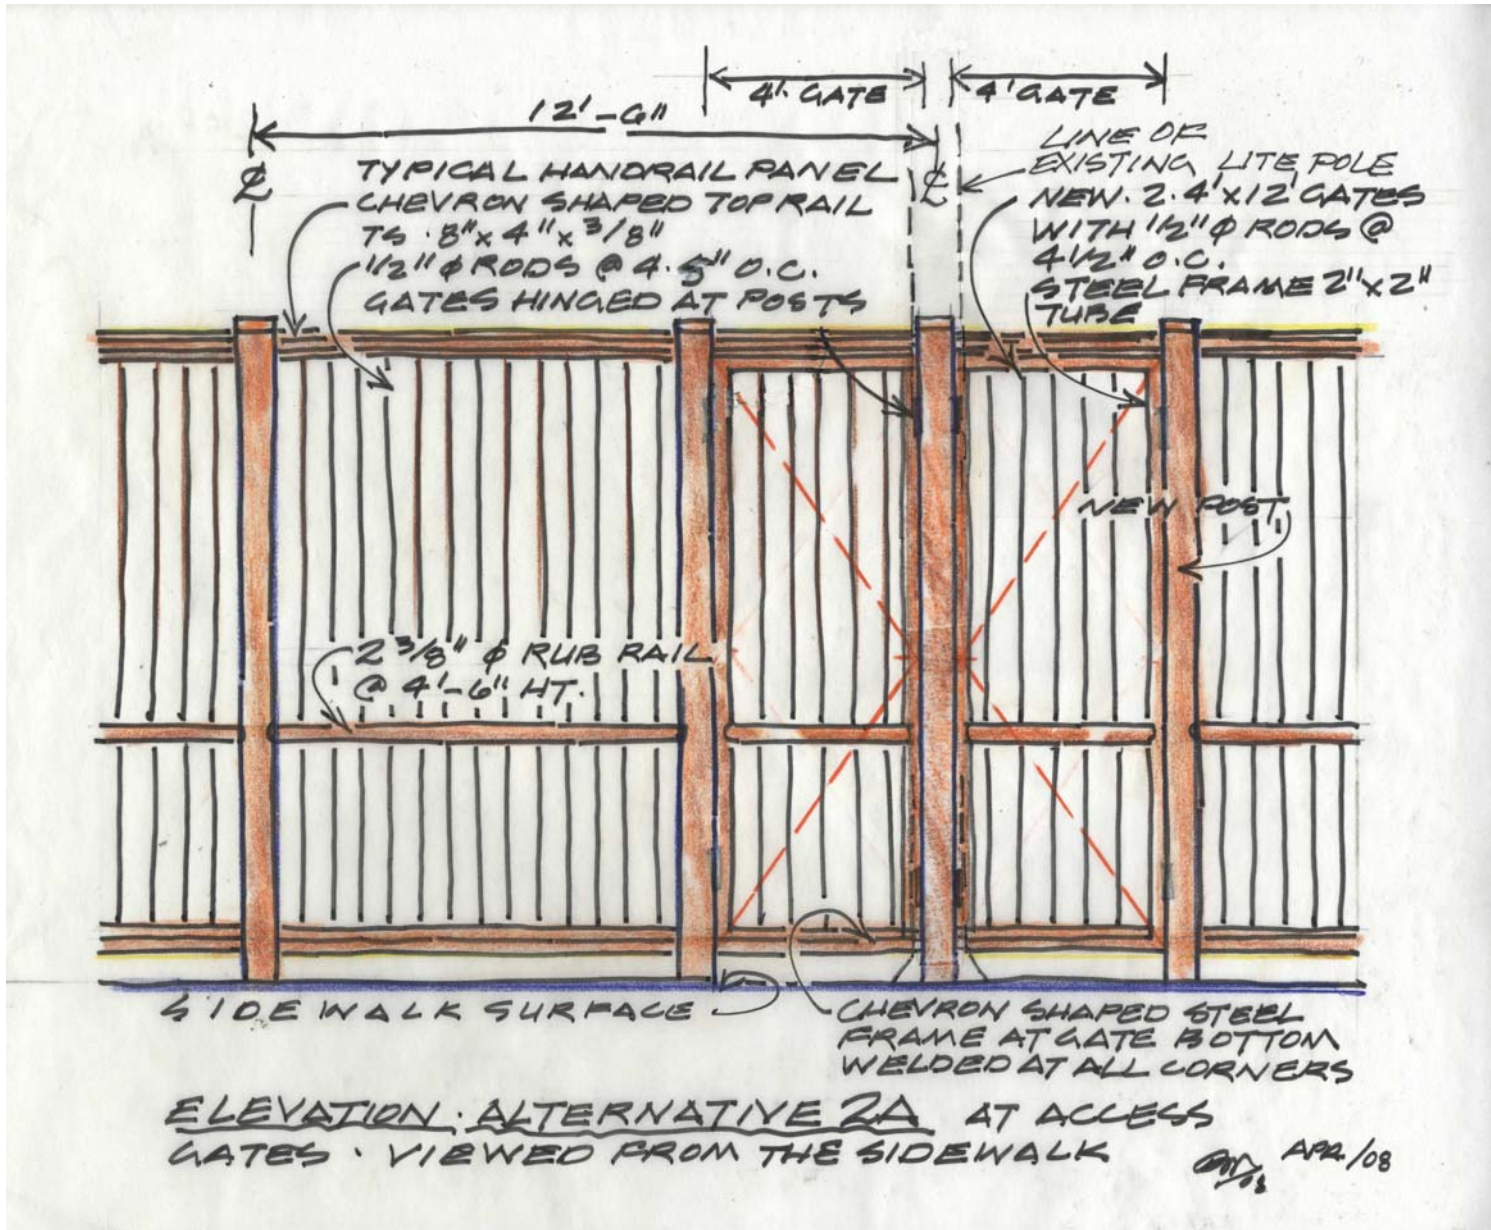 4'. GATE
4' GATE
12'-6"
℄
℄
TYPICAL HANDRAIL PANEL
CHEVRON SHAPED TOP RAIL
TS . 8" x 4" x 3/8"
1/2" ⌀ RODS @ 4.5" O.C.
GATES HINGED AT POSTS
LINE OF
EXISTING LITE POLE
NEW. 2. 4' x 12' GATES
WITH 1/2" ⌀ RODS @
4 1/2" O.C.
STEEL FRAME 2" x 2"
TUBE
NEW POST
2 3/8" ⌀ RUB RAIL
@ 4'-6" HT.
SIDEWALK SURFACE
CHEVRON SHAPED STEEL
FRAME AT GATE BOTTOM
WELDED AT ALL CORNERS
ELEVATION . ALTERNATIVE 2A AT ACCESS
GATES . VIEWED FROM THE SIDEWALK
APR /08